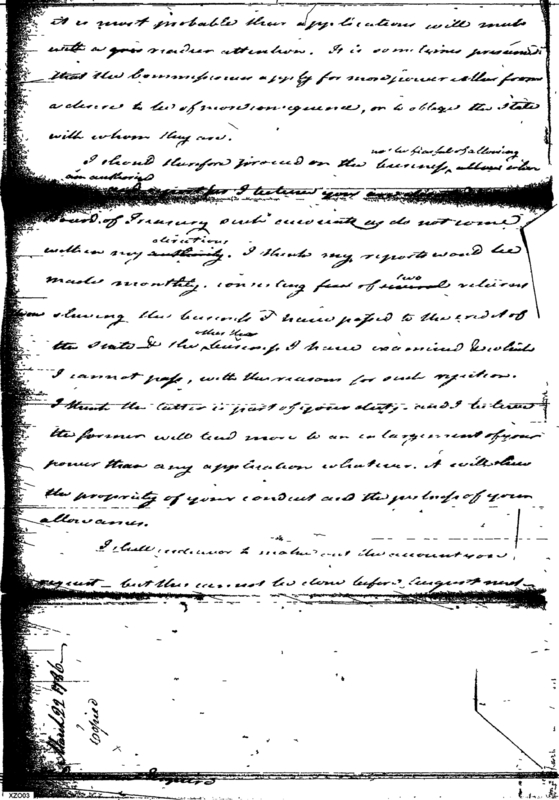 it is most probable their applications will meet
with a readier attention. It is sometimes presumed
that the Commissioners apply for more power either from
a desire to be of more consequence, or to oblige the State
with whom they are.
I should therefore proceed on the business, 
not be fearful of allowing
am authorised
Board of Treasury such accounts as do not come
directions
within my authority. I think my reports would be
two
made monthly. consisting of several returns
one shewing the business I have passed to the credit of
other the
the State & the business I have examined & which
I cannot pass, with the reasons for such rejection.
I think the latter is part of your duty. and I believe
the former will tend more to an enlargement of your
power than any application whatever. it will shew
the propriety of your conduct and the justness of your
allowances.
I shall endeavor to make out the account you
request - but this cannot be done before August next
March 22 1786
Copied
XZO03